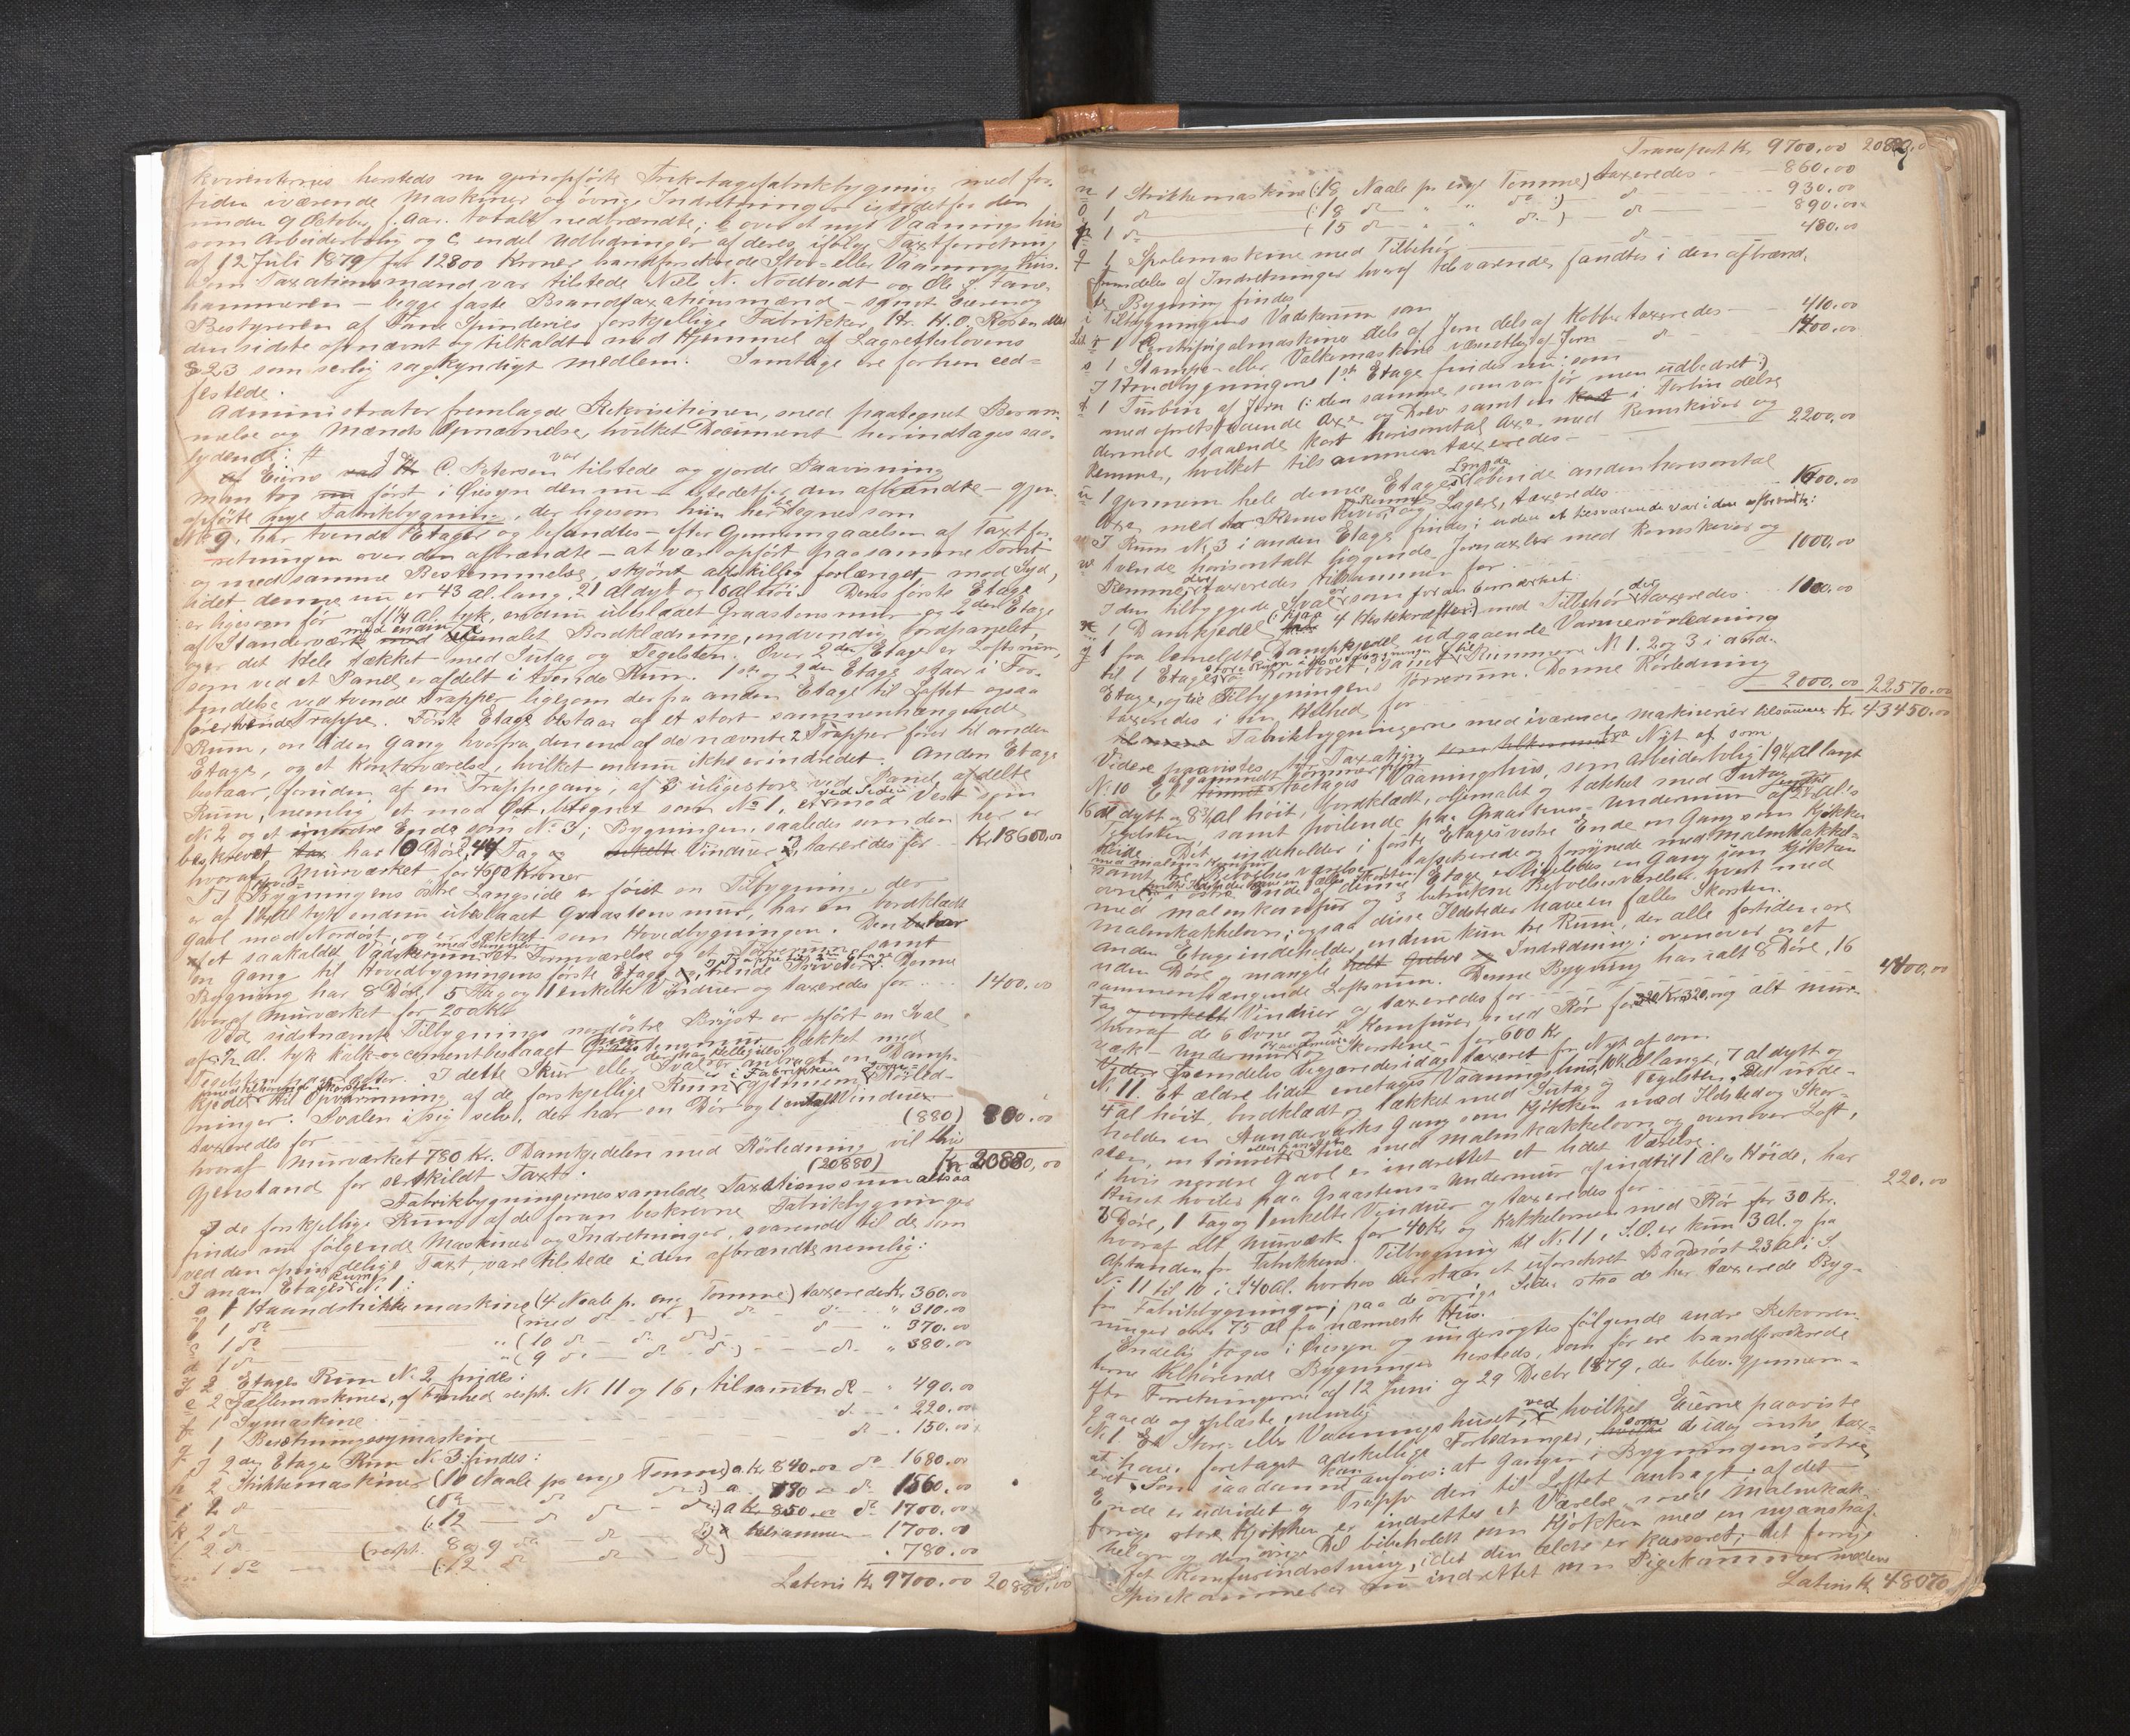 kvirenternes hersteds nu gjenopførte Trikotagefabrikbygning med for-
tiden iværende Maskiner og øvrige Indretninger istedetfor den
under 9 October f. Aar. totalt nedbrændte; b over et nyt Vaaningshus
som Arbeiderbolig og c, endel Udbedringer af deres, ifølge Taxtforretning
af 12 Juli 1879 for 12800 Kroner brandforsikrede Stor- eller Vaaningshus.
Som Taxationsmænd var tilstede Niels N. Nødtvedt og Ole S. Fane-
hammeren – begge faste Brandtaxationsmænd – samt Eieren og
Bestyreren af Fane Spinderies forskjellige Fabrikker, Hr. H. O.
den sidste opnævnt og tilkaldt med Hjemmel af Lagretteslovens
§ 23 som særlig sagkyndigt medlem. Samtlige ere forhen eed-
fæstede.
Administrator fremlagde Rekvisitionen, med paategnet Beram-
melse og Mænds Opnævnelse, hvilket Document herindtages saa-
lydende: #
Af Eierne var C. Petersen tilstede og gjorde Paavisning
Man tog først i Øiesyn den nu – istedetfor den afbrændte – gjen-
opførte nye Fabrikbygning, der ligesom hiin her betegnes som
No 9, har tvende Etager og befandtes – efter Gjennemgaaelsen af Taxtfor-
retningen over den afbrændte – at være opført paa samme Tomt
og med samme Bestemmelse, skjønt adskillig forlænget mod Syd,
idet denne nu er 43 al. lang, 21 al dyb og 10 al høi. Dens første Etage
er ligesom før af 1¼ Al. tyk, endnu ubeslaaet Graastensmur og 2den Etage
af Standerværk med endnu umalet Bordklædning, indvendig bordpanelet,
og er det Hele tækket med Sutag og Tegelsten. Over 2den Etage er Loftsrum,
som ved et Panel er afdelt i tvende Rum. 1ste og 2den Etage staar i For-
bindelse ved tvende Trapper ligesom der fra anden Etage til Loftet ogsaa
fører tvende Trappe. Første Etage bestaar af et stort sammenhængende
Rum, en liden Gang hvorfra den ene af de nævnte 2 Trapper fører til anden
Etage, og et Kontorværelse, hvilket endnu ikke er indredet. Anden Etage
bestaar, foruden af en Trappegang, af 3 uligestore ved Panel afdelte
Rum, nemlig et mod Øst, betegnet som No 1, et ved Siden mod Vest som
No 2 og et i nordre Ende som No 3; Bygningen, saaledes som den her er
beskrevet har 10 Døre, 44 Fag Vinduer taxeredes for Kr 18600,00
hvoraf Murværket for 4600 Kroner
Til Hovedbygningens østre Langside er føiet en Tilbygning, der
er af 1¼ Al tyk endnu ubeslaaet Graastensmur, har en bordklædt
Gavl mod Nordøst, og er tækket som Hovedbygningen. Den
et saakaldt Vadskerum, et Tørreværelse og et Tørrerum samt
en Gang til Hovedbygningens første Etage og tvende Priveter. Denne
Bygning har 8 Døre, 5 Fag og 1 enkelte Vinduer og taxeredes for 1400.00
hvoraf Murværket for 200 Kr
Ved sidstnævnte Tilbygnings nordøstre Bryst er opført en Sval
af ½ Al. tyk Kalk- og cementbeslaaet Graastensmur tækket med
I dette Skur eller Sval er anbragt en Damp-
kjedel til Opvarmning af de forskjellige Rum i Fabrikken gjennem Rørled-
ninger. Svalen i sig selv, der har en Dør og 1 enkelt Vindue
taxeredes for (880) 800.00
hvoraf Murværket 780 Kr. Dampkjedelen med Rørledning vil blive
Gjenstand for særskildt Taxt. (20880) Kr. 20880,00
Fabrikbygningernes samlede Taxationssum altsaa
I de forskjellige Rum af de foran beskrevne Fabrikbygninger
findes nu følgende Maskiner og Indretninger, svarende til de som
ved den oprindelige Taxt, vare tilstede i den afbrændte nemlig:
I anden Etages Rum No 1:
a 1 Haandstrikkemaskine (4 Naale pr. eng. Tomme) taxeredes Kr. 360.00
b 1 do (med do do) do " 310.00
c 1 do " (10 do do do) do " 370.00
d 1 do " (9 do do do) do " 380.00
I 2 Etages Rum No 2 findes:
e 2 Fællemaskiner, af Finhed resp. No 11 og 16, tilsammen do 490.00
f 1 Symaskine do 220.00
g 1 Besætningssymaskine do 150.00
I 2den Etages Rum No 3 findes:
h 2 Strikkemaskiner (10 Naale pr. enge Tomme) a Kr. 840.00 do 1680.00
i 2 do (12 do do do) a 780 do 1560.00
k 2 do (12 do do do) a Kr. 850.00 do 1700.00
l 2 do (resp. 8 og 9 do do do) tilsammen 1700.00
m 1 do (12 do do do) 780.00
Lateris Kr 9700.00 20880,00
Transport Kr. 9700.00 20880,0
n 1 Strikkemaskine (18 Naale pr. enge Tomme) taxeredes 860.00
o 1 do (18 do " " do) do 930.00
p 1 do (15 do " " do) do 890.00
q 1 Spolemaskine med Tilbehør do 480.00
Fremdeles af Indretninger hvoraf tilsvarende fandtes i den afbrænd-
te Bygning findes
i Tilbygningens Vadskerum som
r 1 Centrifugalmaskine dels af Jern dels af Kobber taxeredes 410.00
s 1 Stampe- eller Valkemaskine væsentlig af Jern do 1400.00
I Hovedbygningens 1ste Etage findes nu: som
t 1 Turbin af Jern (: den samme som var før men udbedret :)
med opretstaaende Axe og Drev samt en i Forbindelse
dermed staaende kort horisontal Axe med Remskiver og
Remme, hvilket tilsammen taxeredes 2200.00
u 1 gjennem hele denne Etages Længde løbende anden horisontal
Axe med Remskiver, Remme og Lagere, taxeredes 1600.00
I Rum No 3 i anden Etage findes i uden et tilsvarende var i den afbrændte:
v tvende horisontalt liggende Jernaxler med Remskiver og
Remme, der taxeredes tilsammen for 1000.00
I den tilbyggede Sval er som foran bemærket
x 1 Dampkjedel (: paa 4 Hestekræfter :) med Tilbehør, der taxeredes 1100.00
y 1 fra bemeldte Dampkjedel udgaaende Varmerørledning
til 1 Etages store Rum Kontoret, samt til Rummene No 1. 2 og 3 i anden
Etage, og til Tilbygningens Tørrerum. Denne Rørledning
taxeredes i sin Helhed for 2000.00 22570.00
Fabrikbygningerne med iværende Maskinerier tilsammen Kr 43450.00
Videre paavistes til Taxation fra Nyt af som
No 10 Et toetages Vaaningshus, som Arbeiderbolig 19¼ Al langt
16 al dybt og 8¾ Al høit, bordklædt, oliemalet og tækket med Sutag
Tegelsten, samt hvilende paa Graastens-Undermur af 2¼ Al:s
Høide. Det indeholder i første Etages vestre Ende en Gang som Kjøkken
samt tre Beboelsesværelser, tapetserede og forsynede med Malmkakkel-
ovne. I østre Ende af denne Etage er ligeledes en Gang som Kjøkken
med Malmkomfur og 3 betrukne Beboelsesværelser hvert med
Malmkakkelovn; ogsaa disse Ildsteder have en fælles Skorsten.
Anden Etage indeholder endnu kun tre Rum, der alle fortiden ere
uden Døre og mangle Indredning; ovenover er et
sammenhængende Loftsrum. Denne Bygning har ialt 8 Døre, 16
Fag Vinduer og taxeredes for 4400.00
hvoraf de 6 Ovne og 2 Komfurer med Rør for Kr 320, og alt Mur-
værk – Undermur og Skorstene – for 600 Kr
Fremdeles begjæredes idag taxeret fra Nyt af som
No 11. Et ældre lidet enetages Vaaningshus, 10¼ Al langt, 7 al dybt og
4 al høit, bordklædt og tækket med Sutag og Tegelsten. Det inde-
holder en Standerværks Gang som Kjøkken med Ildsted og Skor-
sten, en tømret Stue med Malmkakkelovn og ovenover Loft,
i hvis nordre Gavl er indrettet et lidet Værelse.
Huset hviler paa Graastens-Undermur af indtil 1 Al:s Høide, har
3 Døre, 1 Fag og 1 enkelte Vinduer og taxeredes for 220.00
hvoraf alt Murværk for 40 Kr og Kakkelovnen med Rør for 30 Kr.
Afstanden fra Fabrikkens Tilbygning til No 11 i S.O. er kun 3 Al. og fra
No 11 til 10 i S 40 Al. hvorhos der staar et uforsikret 23 Al i S
fra Fabrikbygningen; paa de øvrige Sider staa de her taxerede Byg-
ninger over 75 Al fra nærmeste Hus.
Endelig toges i Øiesyn og undersøgtes følgende andre Rekvirenterne
tilhørende Bygninger hersteds, som før ere brandforsikrede
efter Forretningerne af 12 Juni og 29 Decbr 1879, der blev gjennem-
gaaede og oplæste, nemlig
No 1 Stor- eller Vaaningshuset, ved hvilket Eierne paaviste
at have foretaget adskillige Forbedringer, som de idag ønske tax-
eret. Som saadanne kan anføres: at Gangen i Bygningens østre
Ende er udvidet og Trappe deri til Loftet anbragt; af det
forrige store Kjøkken er indrettet et Værelse med Malmkak-
kelovn og den øvrige Del bibeholdt som Kjøkken med en nyanskaf-
fet Komfurindretning, idet den ældre er kasseret; det forrige
Spisekammer er nu indrettet som Pigekammer medens
Lateris Kr. 48070